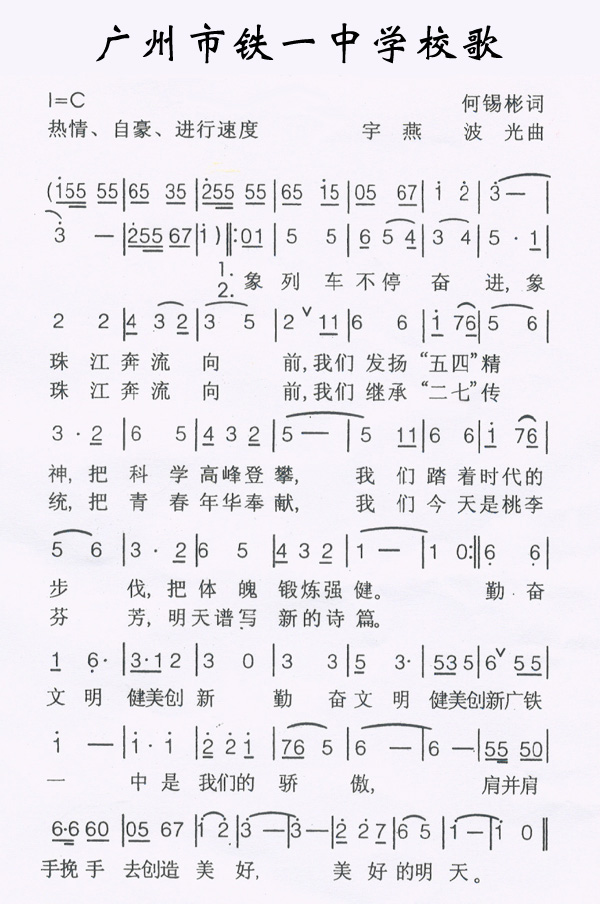 广州市铁一中学校歌
1=C 何锡彬词
热情、自豪、进行速度 宇燕 波光曲
(1̇55 55|65 35|2̇55 55|65 1̇5|05 67|1̇ 2̇|3̇ —|
3̇ —|2̇55 67|1̇)‖:01|5 5|6 5 4|3 4|5 · 1|
1. 象列车不停奋进,象
2.
2 2|4 3 2|3 5|2 ˅ 11|6 6|1̇ 76|5 6|
珠江奔流向前,我们发扬“五四”精
珠江奔流向前,我们继承“二七”传
3 · 2|6 5|4 3 2|5 —|5 11|6 6|1̇ 76|
神,把科学高峰登攀,我们踏着时代的
统,把青春年华奉献,我们今天是桃李
5 6|3 · 2|6 5|4 3 2|1 —|1 0:‖6̣ 6̣|
步伐,把体魄锻炼强健。勤奋
芬芳,明天谱写新的诗篇。
1 6̣·|3·1 2|3 0|3 3|5 3·|53 5|6 ˅ 55|
文明健美创新勤奋文明健美创新广铁
1̇ —|1̇ · 1̇|2̇ 2̇1̇|76 5|6 —|6 —|55 50|
一中是我们的骄傲,肩并肩
6·6 60|05 67|1̇ 2̇|3̇ —|3̇ —|2̇ 2̇7|6 5|1̇ —|1̇ 0‖
手挽手去创造美好,美好的明天。